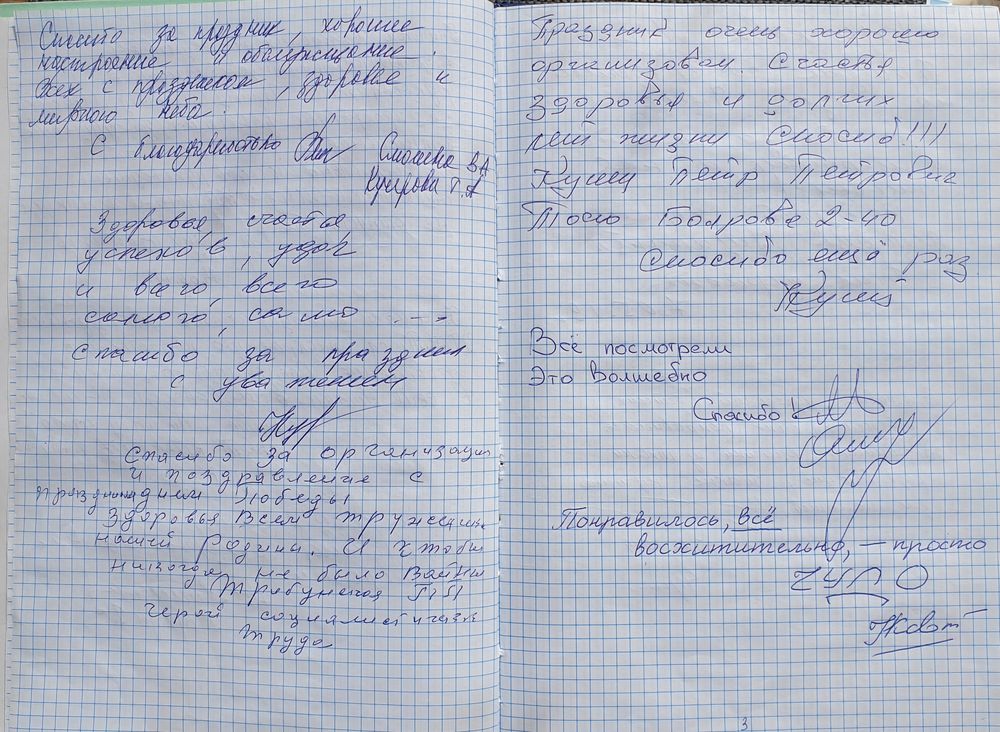 Спасибо за праздник, хорошее
настроение и
Всех с праздником, здоровье и
мирного неба.
С благодарностью Смолена ВА
Кучерова Т.А
Здоровья, счастья
успехов, удач
и всего, всего
самого, само ...
спасибо за праздник
с уважением
Спасибо за организацию
и поздравление с
праздником днем Победы
Здоровья Всем труженикам
нашей Родины. И чтобы
никогда не было Войны
Трибунская
Герой социалистич
труда
Праздник очень хорошо
организован. Счастья
здоровья и долгих
лет жизни Спасиб!!!
Кущ Пётр Петрович
Боярова 2-40
Спасибо ещё раз
Кущ
Всё посмотрели
Это Волшебно
Спасибо!
Понравилось, всё
восхитительно, – просто
ЧУДО
3